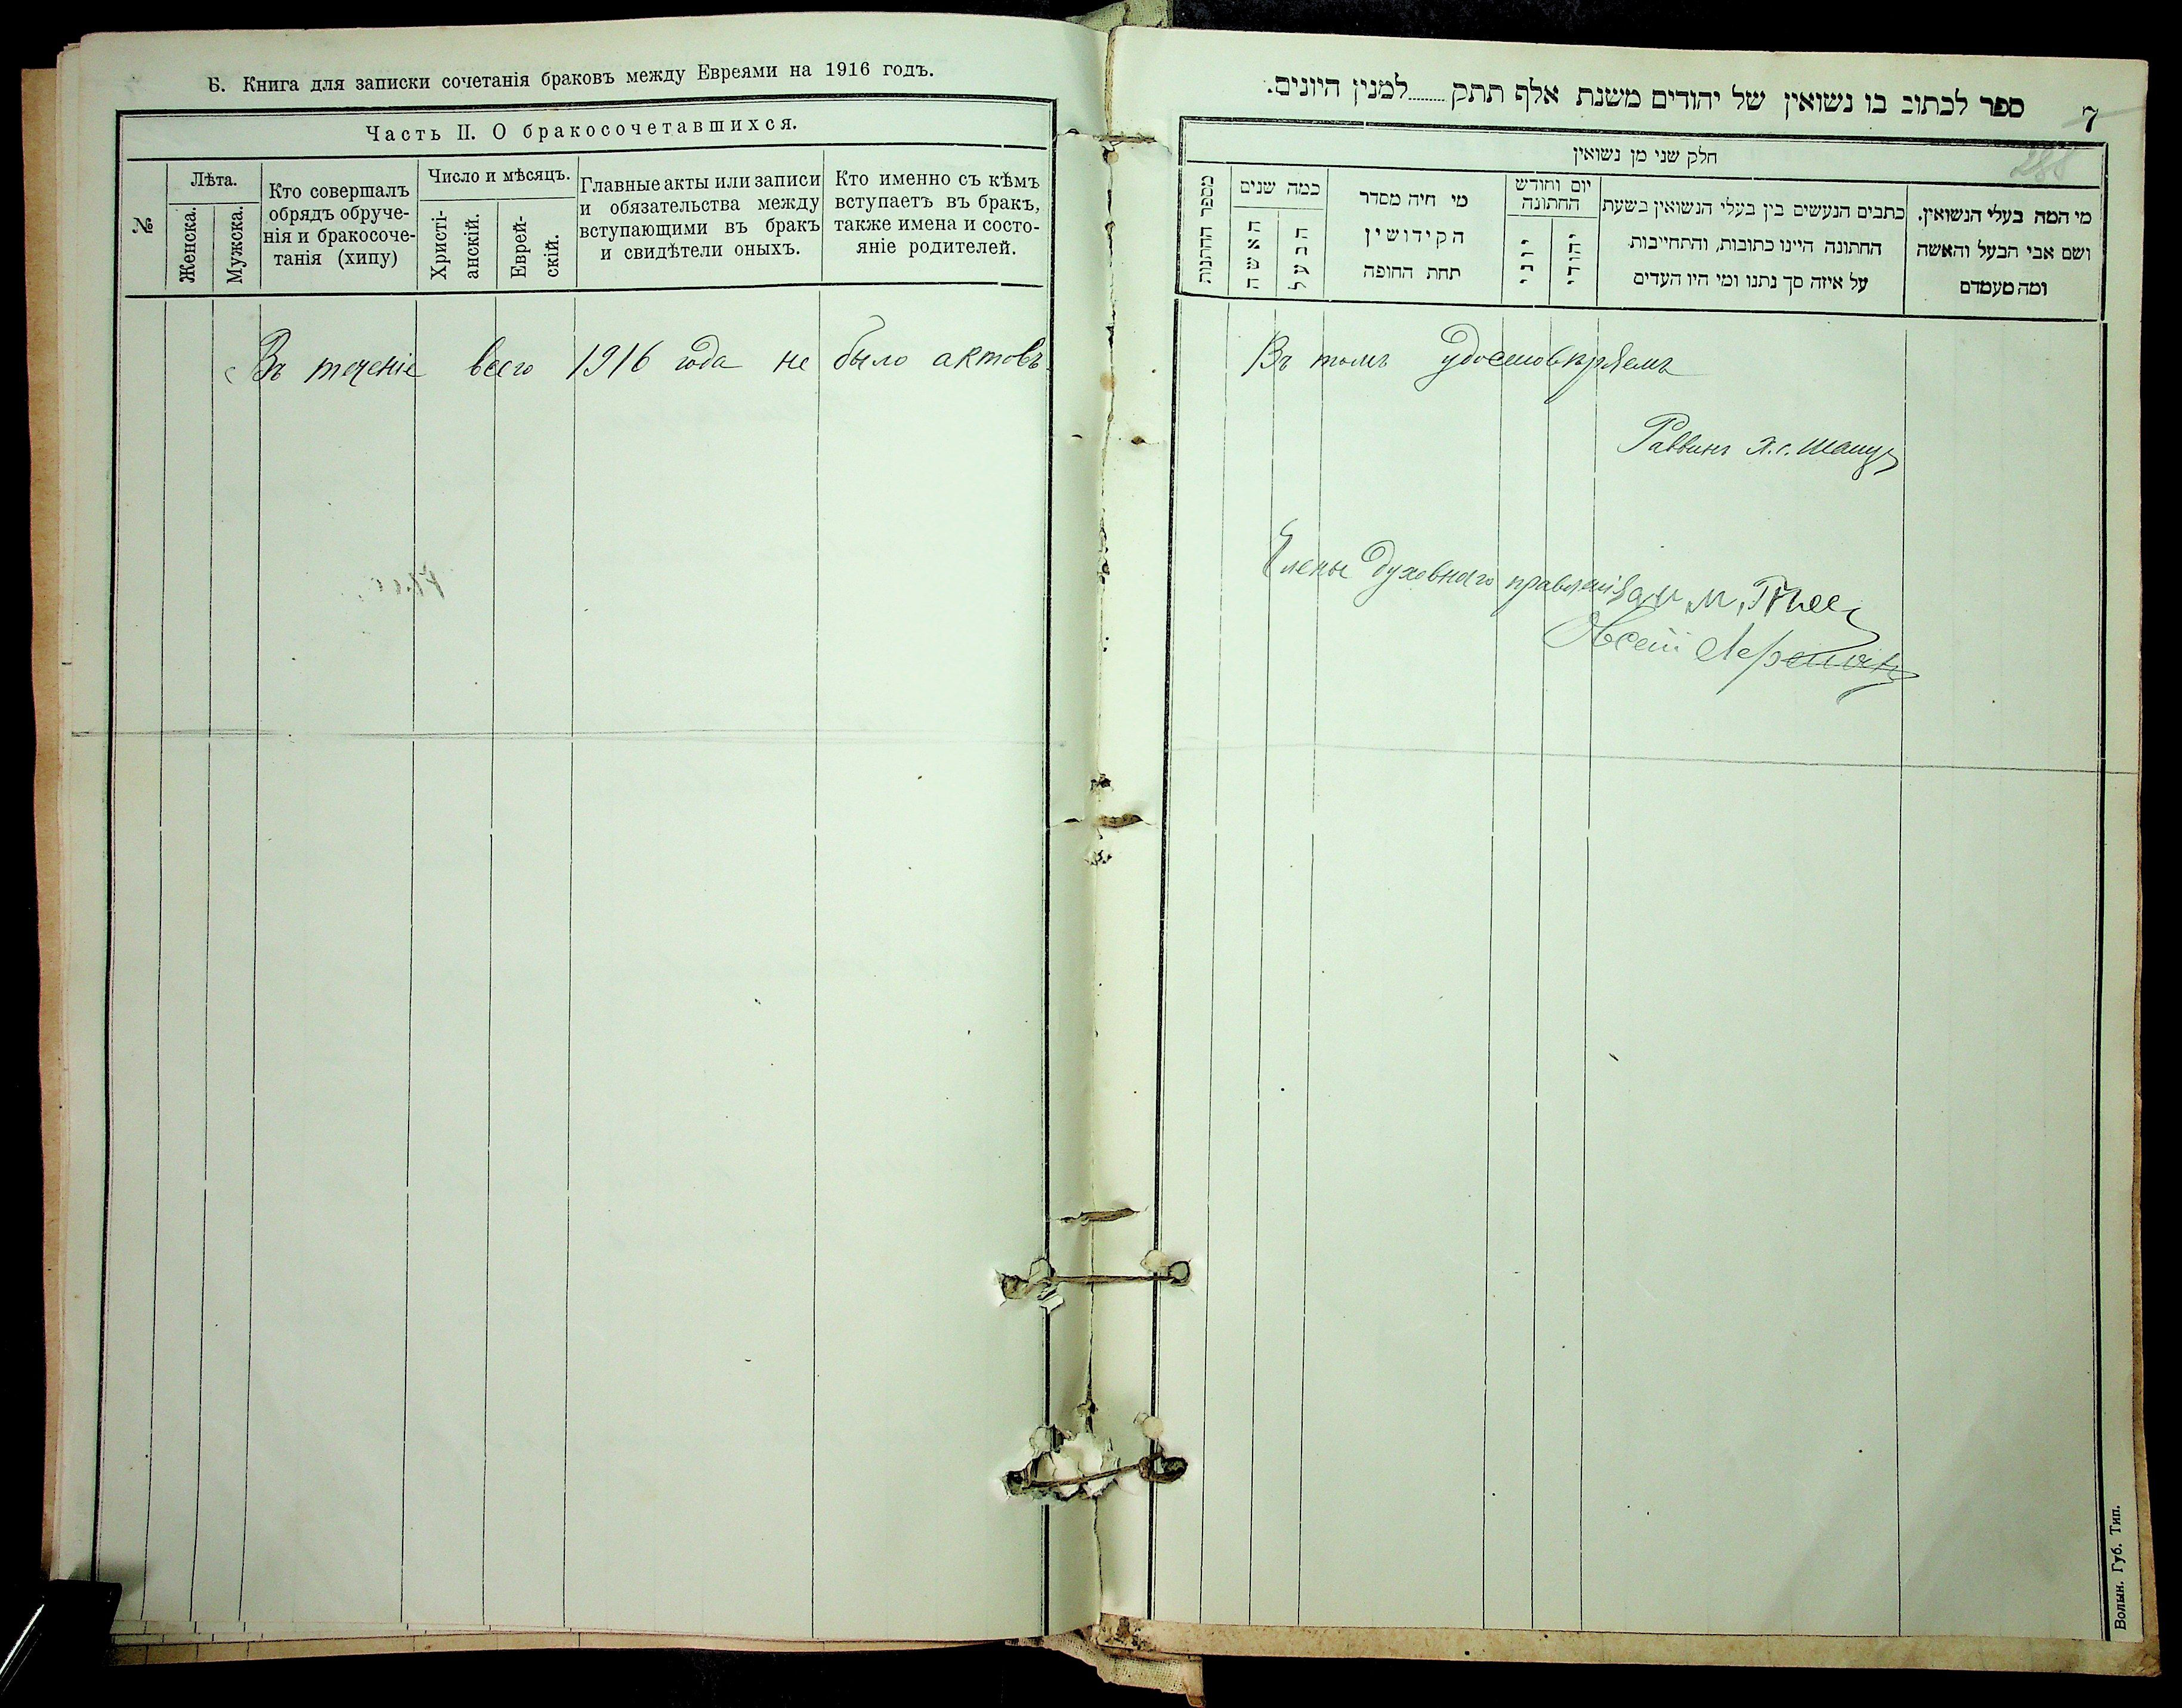 Б. Книга для записки сочетанія браковъ между Евреями на 1916 годъ.
Часть II. О бракосочетавшихся.
№
Лѣта.
Женска.
Мужска.
Кто совершалъ
обрядъ обруче-
нія и бракосоче-
танія (хипу)
Число и мѣсяцъ.
Христі-
анскій.
Еврей-
скій.
Главные акты или записи
и обязательства между
вступающими въ бракъ
и свидѣтели оныхъ.
Кто именно съ кѣмъ
вступаетъ въ бракъ,
также имена и состо-
яніе родителей.
Въ теченіе всего 1916 года не было актовъ
ספר לכתוב בו נשואין של יהודים משנת אלף תתק........למנין היונים.
7
288
חלק שני מן נשואין
מי המה בעלי הנשואין.
ושם אבי הבעל והאשה
ומה מעמדם
כתבים הנעשים בין בעלי הנשואין בשעת
החתונה היינו כתובות, והתחייבות
על איזה סך נתנו ומי היו העדים
יום וחודש
החתונה
יהודי
יוני
מי חיה מסדר
הקידושין
תחת החופה
כמה שנים
הבעל
האשה
מספר החתונות
Въ томъ удостовѣряемъ
Раввинъ Х. С.
Члены духовнаго правленія
Волын. Губ. Тип.